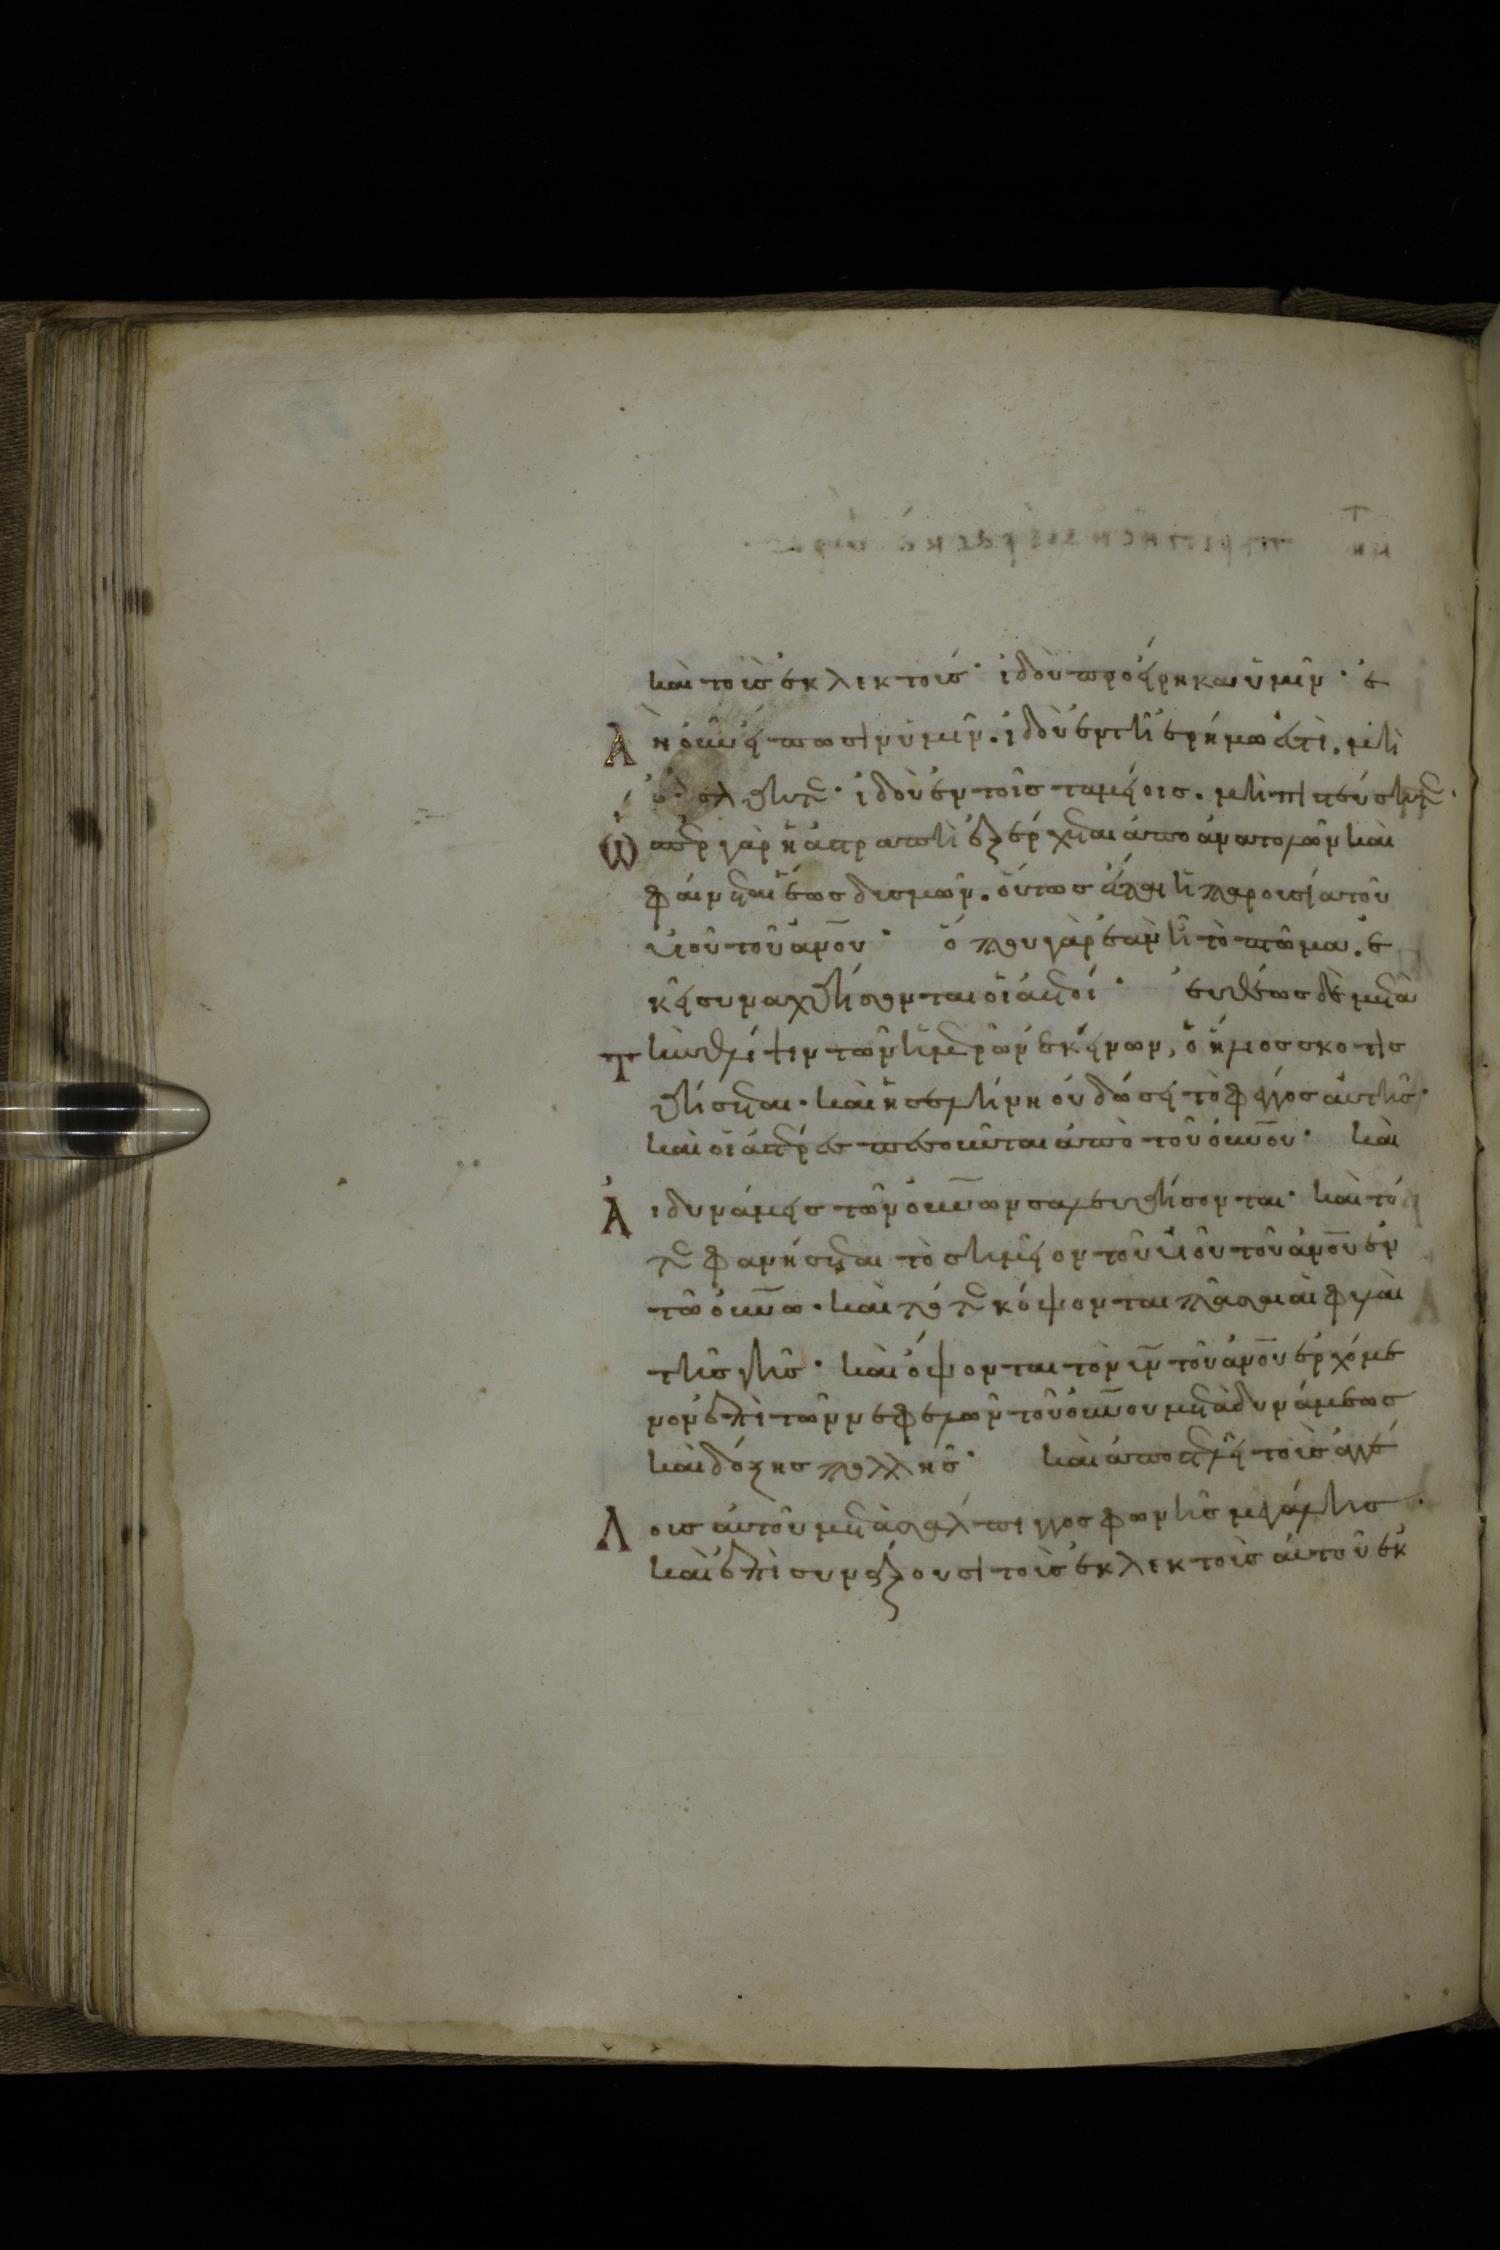 καὶ τοὺς ἐκλεκτούς· ἰδοὺ προείρηκα ὑμῖν· ἐ
ὰν οὖν εἴπωσιν ὑμῖν. ἰδοὺ ἐν τῆ ἐρήμω ἐστὶ, μὴ
ἐξέλθητε· ἰδοὺ ἐν τοῖς ταμείοις. μὴ πιστεύσητε·
Ὥσπερ γὰρ ἡ ἀστραπὴ ἐξέρχεται ἀπὸ ἀνατολῶν καὶ
φαίνεται ἕως δυσμῶν. οὕτως ἔσται ἡ παρουσία τοῦ
υἱοῦ τοῦ ἀνου· ὅπου γὰρ ἐὰν ἦ τὸ πτῶμα. ἐ
κεῖ συναχθήσονται οἱ ἀετοί· εὐθέως δὲ μετὰ
Τὴν θλίψιν τῶν ἡμερῶν ἐκείνων, ὁ ἥλιος σκοτις
θήσεται. καὶ ἡ σελήνη οὐ δώσει τὸ φέγγος αὐτῆς·
καὶ οἱ ἀστέρες πεσοῦνται ἀπὸ τοῦ οὐνου· καὶ
Αἱ δυνάμεις τῶν οὐνων σαλευθήσονται· καὶ τό
τε φανήσεται τὸ σημεῖον τοῦ υἱοῦ τοῦ ἀνου ἐν
τῶ οὐνω. καὶ τότε κόψονται πᾶσαι αἱ φυλαὶ
τῆς γῆς· καὶ ὄψονται τὸν υν τοῦ ἀνου ἐρχόμε
νον ἐπὶ τῶν νεφελῶν τοῦ οὐνου μετὰ δυνάμεως
καὶ δόξης πολλῆς· καὶ ἀποστελεῖ τοὺς ἀγγέ
Λους αὐτοῦ μετὰ σάλπιγγος φωνῆς μεγάλης·
καὶ ἐπισυνάξουσι τοὺς ἐκλεκτοὺς αὐτοῦ ἐκ